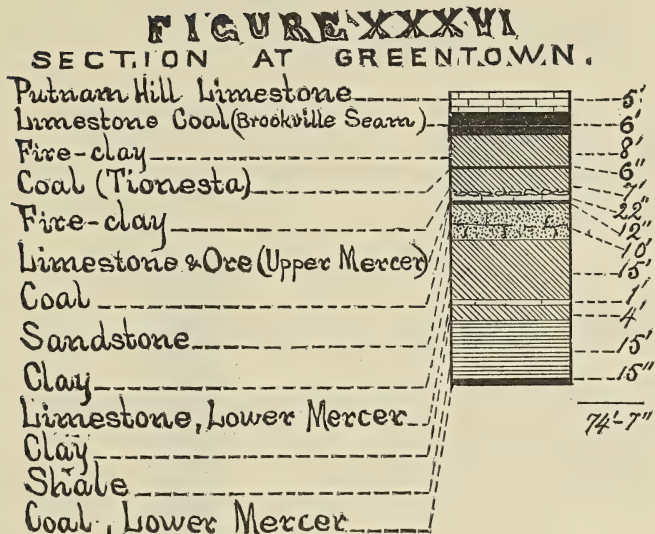 FIGURE XXXVI
SECTION AT GREENTOWN.
Putnam Hill Limestone 5'
Limestone Coal (Brookville Seam) 6'
Fire-clay 8'
Coal (Tionesta) 6"
Fire-clay 7'
Limestone & Ore (Upper Mercer) 22"
Coal 12"
Sandstone 10'
Clay 15'
Limestone, Lower Mercer 1'
Clay 4'
Shale 15'
Coal, Lower Mercer 15"
74'-7"